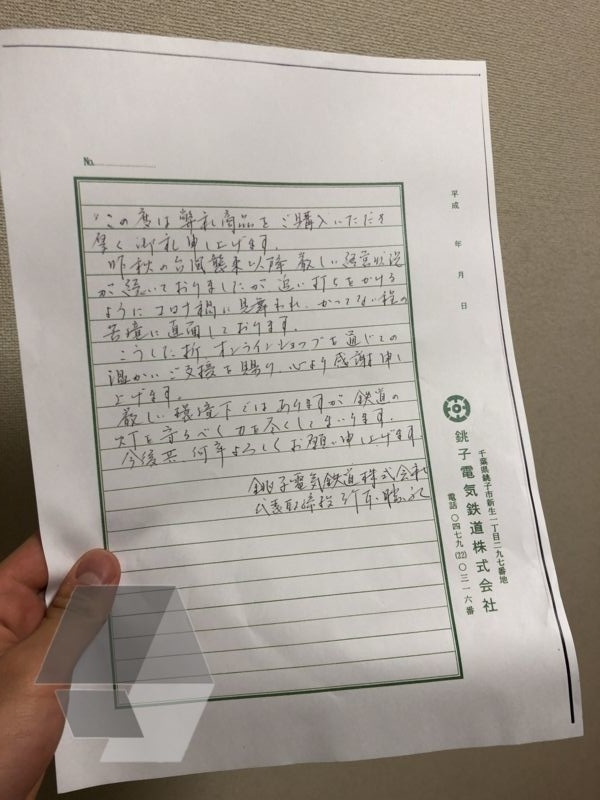 No.
この度は弊社商品をご購入いただき
厚く御礼申し上げます。
昨秋の台風襲来以降厳しい経営状況
が続いておりましたが追い打ちをかける
ようにコロナ禍に見舞われ、かつてない程の
苦境に直面しております。
こうした折、オンラインショップを通じての
温かいご支援を賜り、心より感謝申し
上げます。
厳しい環境下ではありますが鉄道の
灯を守るべく力を尽くしてまいります。
今後共、何卒よろしくお願い申し上げます
銚子電気鉄道株式会社
代表取締役 竹本勝紀
平成 年 月 日
千葉県銚子市新生一丁目二九七番地
銚子電気鉄道株式会社
電話〇四七九(22)〇三一六番